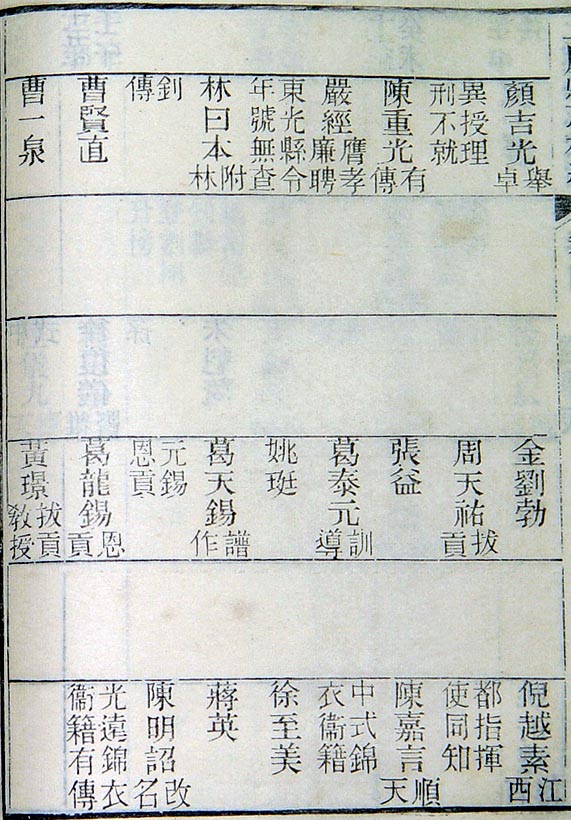 顏吉光舉卓
異授理
刑不就
陳重光有傳
嚴經膺孝廉聘
東光縣令
年號無查
林曰本附林
釗傳
曹賢直
曹一泉
金劉勃
周天祐拔貢
張益
葛泰元訓導
姚珽
葛天錫譜作
元錫
恩貢
葛龍錫恩貢
黃璟拔貢教授
倪越素江西
都指揮
使同知
陳嘉言順天
中式錦
衣衞籍
徐至美
蔣英
陳明詔改名
光遠錦衣
衞籍有傳